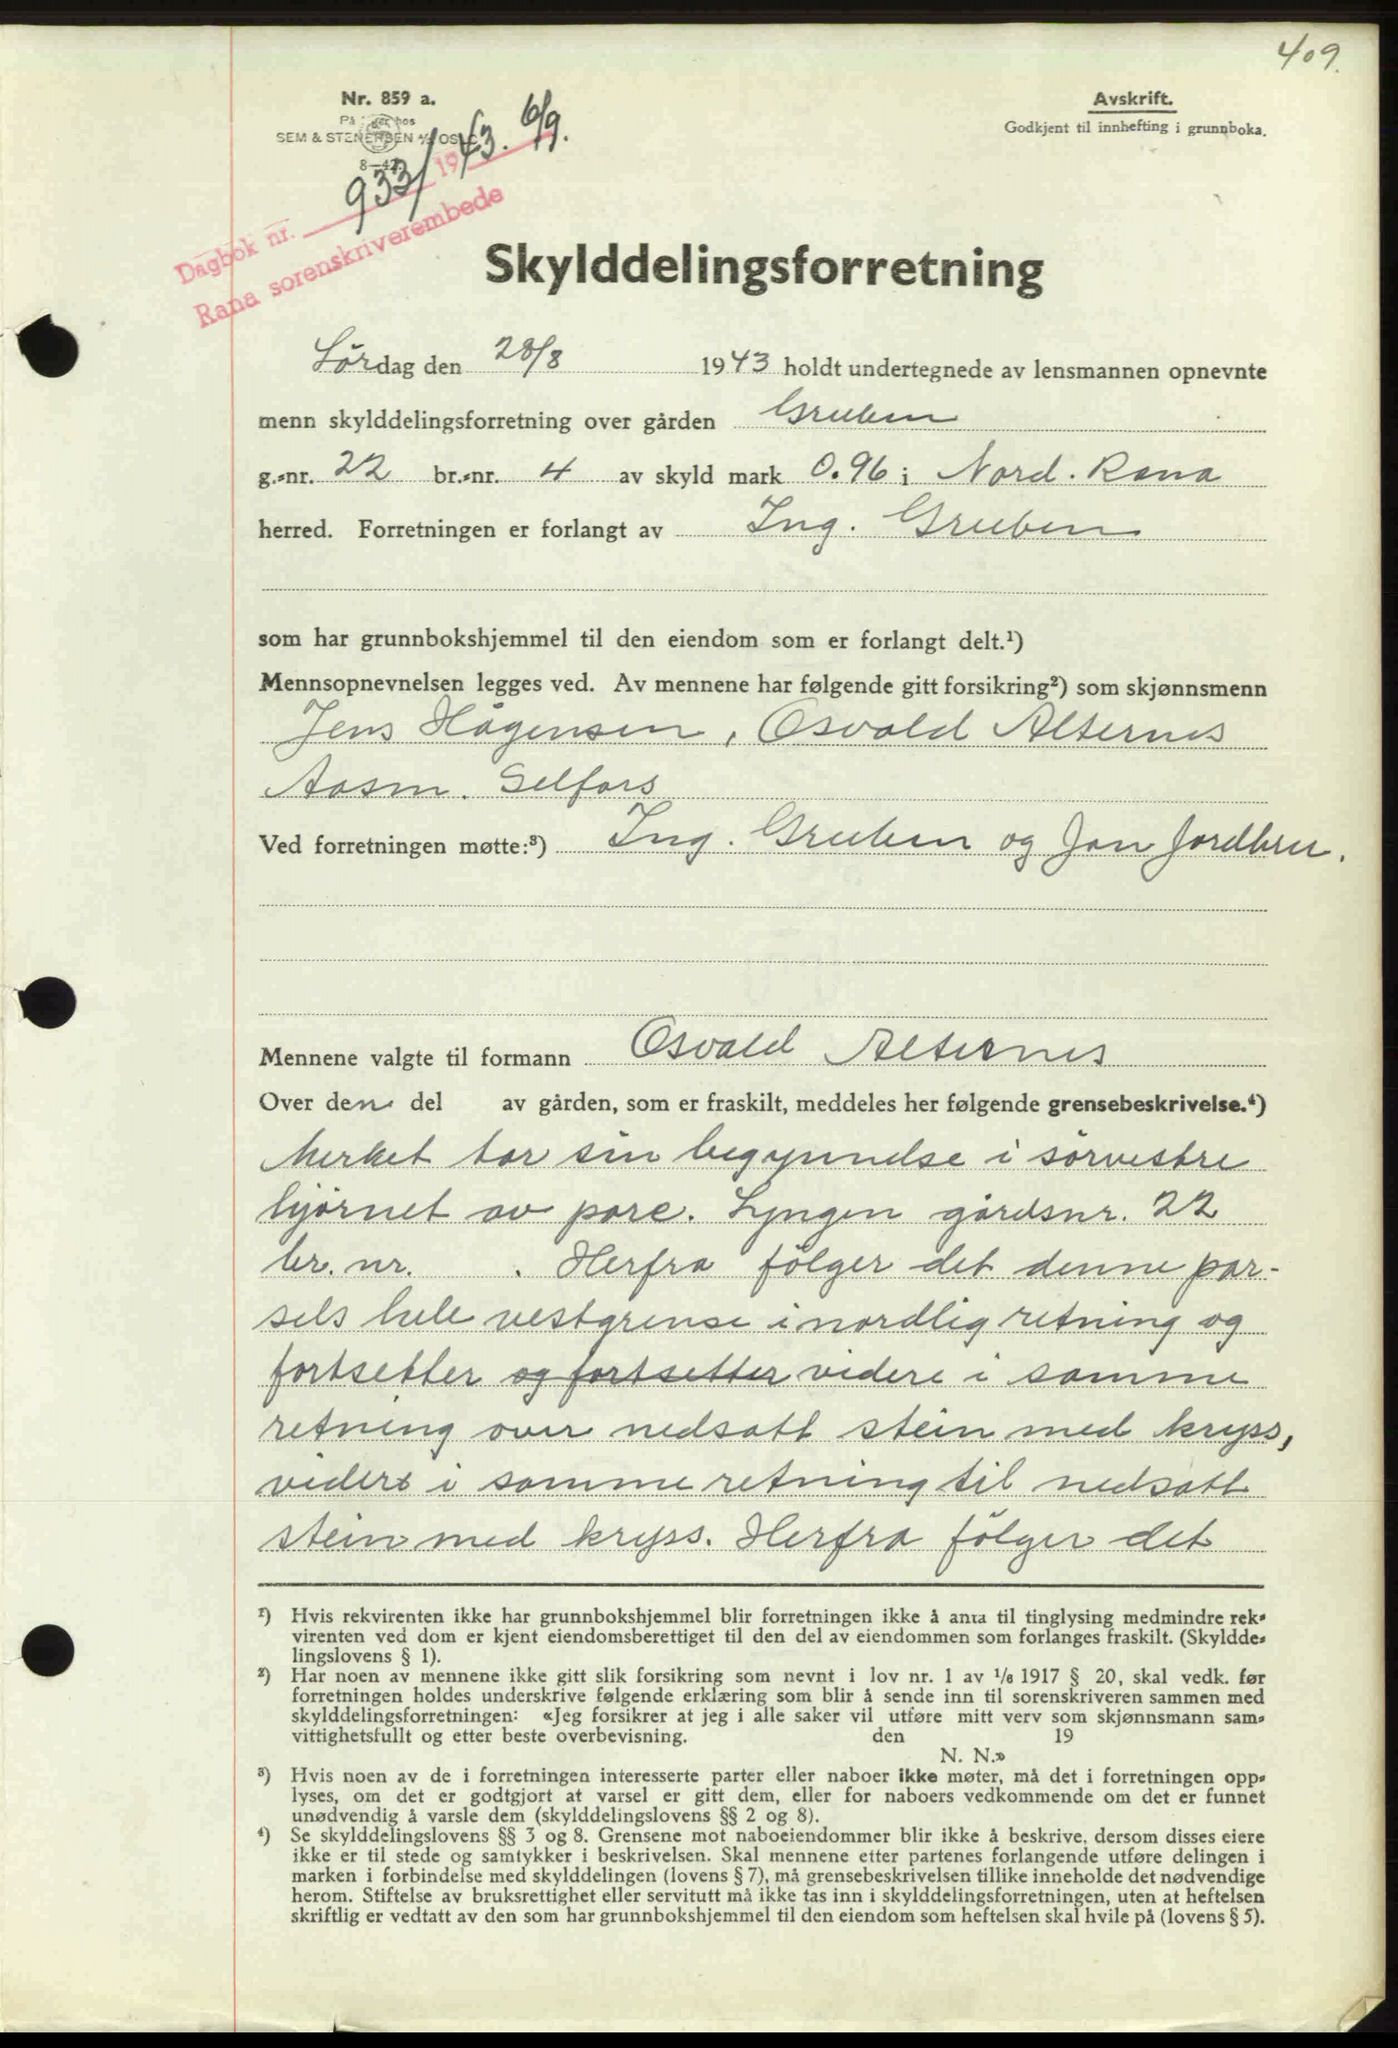 409.
Nr. 859 a.
På hos
SEM & STENERSEN A/S OSLO
8—42.
Avskrift.
Godkjent til innhefting i grunnboka.
Dagbok nr. 933/ 1943. 6/9.
Rana sorenskriverembede
Skylddelingsforretning
Lördag den 28/8 1943 holdt undertegnede av lensmannen opnevnte
menn skylddelingsforretning over gården Gruben
g.-nr. 22 br.-nr. 4 av skyld mark 0.96 i Nord-Rana
herred. Forretningen er forlangt av Ing. Gruben
som har grunnbokshjemmel til den eiendom som er forlangt delt.¹)
Mennsopnevnelsen legges ved. Av mennene har følgende gitt forsikring²) som skjønnsmenn
Jens Hågensen, Osvald Alternes
Aasm. Selfors
Ved forretningen møtte:³) Ing. Gruben og Jon Jordbru.
Mennene valgte til formann Osvald Alternes
Over den del av gården, som er fraskilt, meddeles her følgende grensebeskrivelse.⁴)
Merket tar sin begynnelse i sörvestre
hjörnet av parc. Lyngen gårdsnr. 22
br. nr. . Herfra fölger det denne par-
sels hele vestgrense i nordlig retning og
fortsetter og fortsetter videre i samme
retning over nedsatt stein med kryss,
videre i samme retning til nedsatt
stein med kryss. Herfra fölger det
¹) Hvis rekvirenten ikke har grunnbokshjemmel blir forretningen ikke å anta til tinglysing medmindre rek-
virenten ved dom er kjent eiendomsberettiget til den del av eiendommen som forlanges fraskilt. (Skyldde-
lingslovens § 1).
²) Har noen av mennene ikke gitt slik forsikring som nevnt i lov nr. 1 av 1/6 1917 § 20, skal vedk. før
forretningen holdes underskrive følgende erklæring som blir å sende inn til sorenskriveren sammen med
skylddelingsforretningen: «Jeg forsikrer at jeg i alle saker vil utføre mitt verv som skjønnsmann sam-
vittighetsfullt og etter beste overbevisning. den 19
N. N.»
³) Hvis noen av de i forretningen interesserte parter eller naboer ikke møter, må det i forretningen opp-
lyses, om det er godtgjort at varsel er gitt dem, eller for naboers vedkommende om det er funnet
unødvendig å varsle dem (skylddelingslovens §§ 2 og 8).
⁴) Se skylddelingslovens §§ 3 og 8. Grensene mot naboeiendommer blir ikke å beskrive, dersom disses eiere
ikke er til stede og samtykker i beskrivelsen. Skal mennene etter partenes forlangende utføre delingen i
marken i forbindelse med skylddelingen (lovens § 7), må grensebeskrivelsen tillike inneholde det nødvendige
herom. Stiftelse av bruksrettighet eller servitutt må ikke tas inn i skylddelingsforretningen, uten at heftelsen
skriftlig er vedtatt av den som har grunnbokshjemmel til den eiendom som heftelsen skal hvile på (lovens § 5).